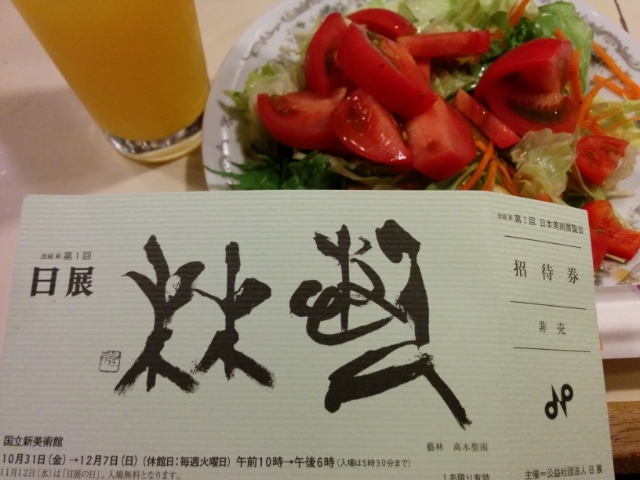 改組 新 第1回
日展
藝林
国立新美術館
10月31日(金)→12月7日(日) (休館日:毎週火曜日) 午前10時→午後6時 (入場は5時30分まで)
11月12日(水)は「日展の日」。入場無料となります。
藝林 髙木聖雨
改組 新 第1回 日本美術展覧会
招待券
非売
1名限り有効
主催=公益社団法人 日展